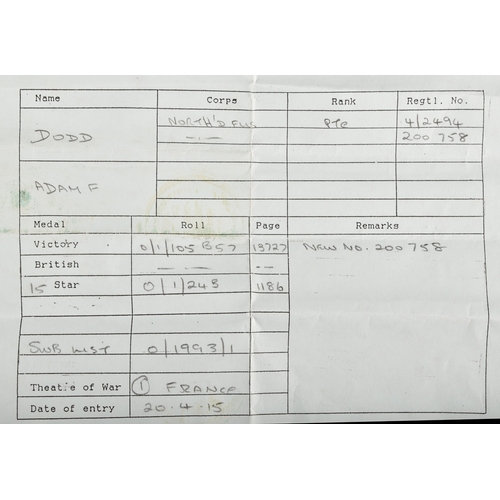 Name Corps Rank Regtl. No.
DODD NORTH'D FUS Pte 4/2494
—.— 200 758
ADAM F
Medal Roll Page Remarks
Victory 0/1/105 B57 13727 NEW NO. 200758
British —.— —.—
15 Star 0/1/24B 1186
SWB LIST 0/1993/1
Theatre of War ① FRANCE
Date of entry 20.4.15